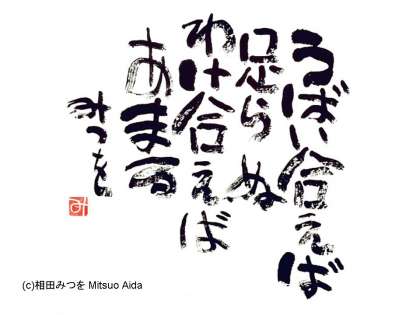 うばい合えば
足らぬ
わけ合えば
あまる
みつを
み
(c)相田みつを Mitsuo Aida